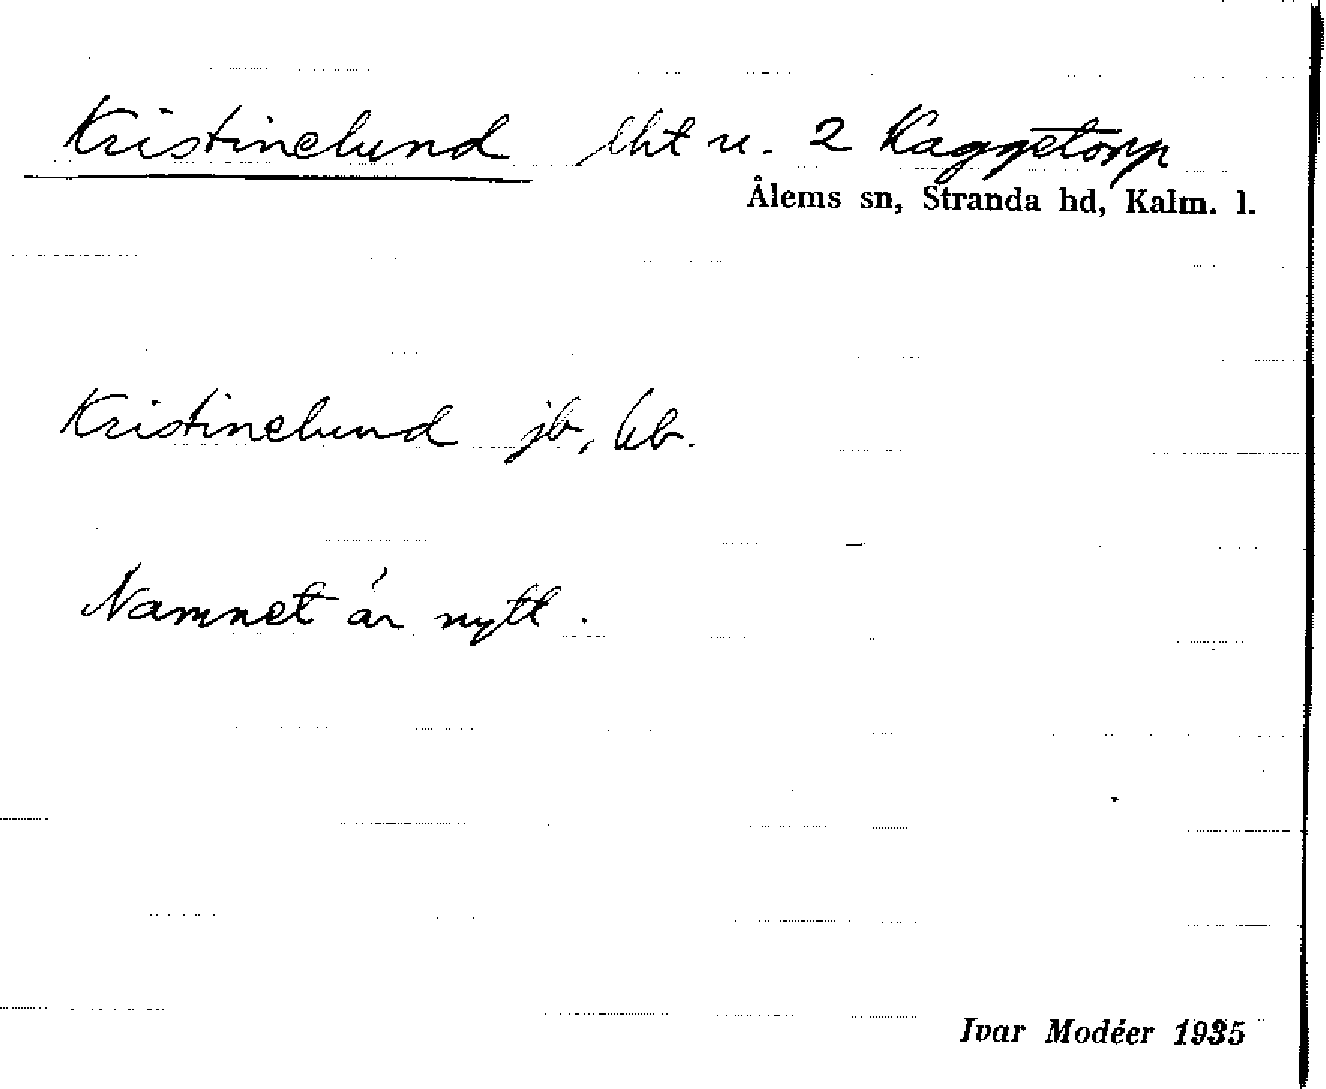 Kristinelund lht u. 2 Kaggetorp
Ålems sn, Stranda hd, Kalm. l.
Kristinelund jb, kb.
Namnet är nytt.
Ivar Modéer 1935